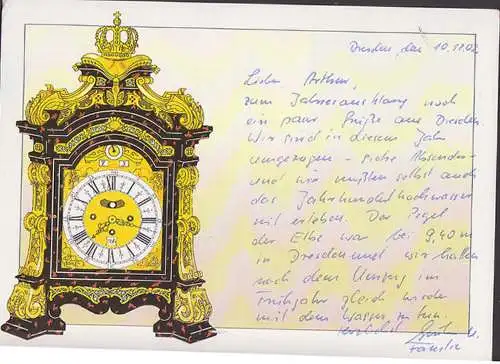 Dresden, den 10.12.02
Lieber Arthur,
zum Jahresausklang noch
ein paar Grüße aus Dresden.
Wir sind in diesem Jahr
umgezogen - siehe Absender -
und wir mußten selbst auch
das Jahrhunderthochwasser
mit erleben. Der Pegel
der Elbe war bei 9,40 m
in Dresden und wir hatten
nach dem Umzug im
Frühjahr gleich wieder
mit dem Wasser zu tun.
herzlichst u.
Familie